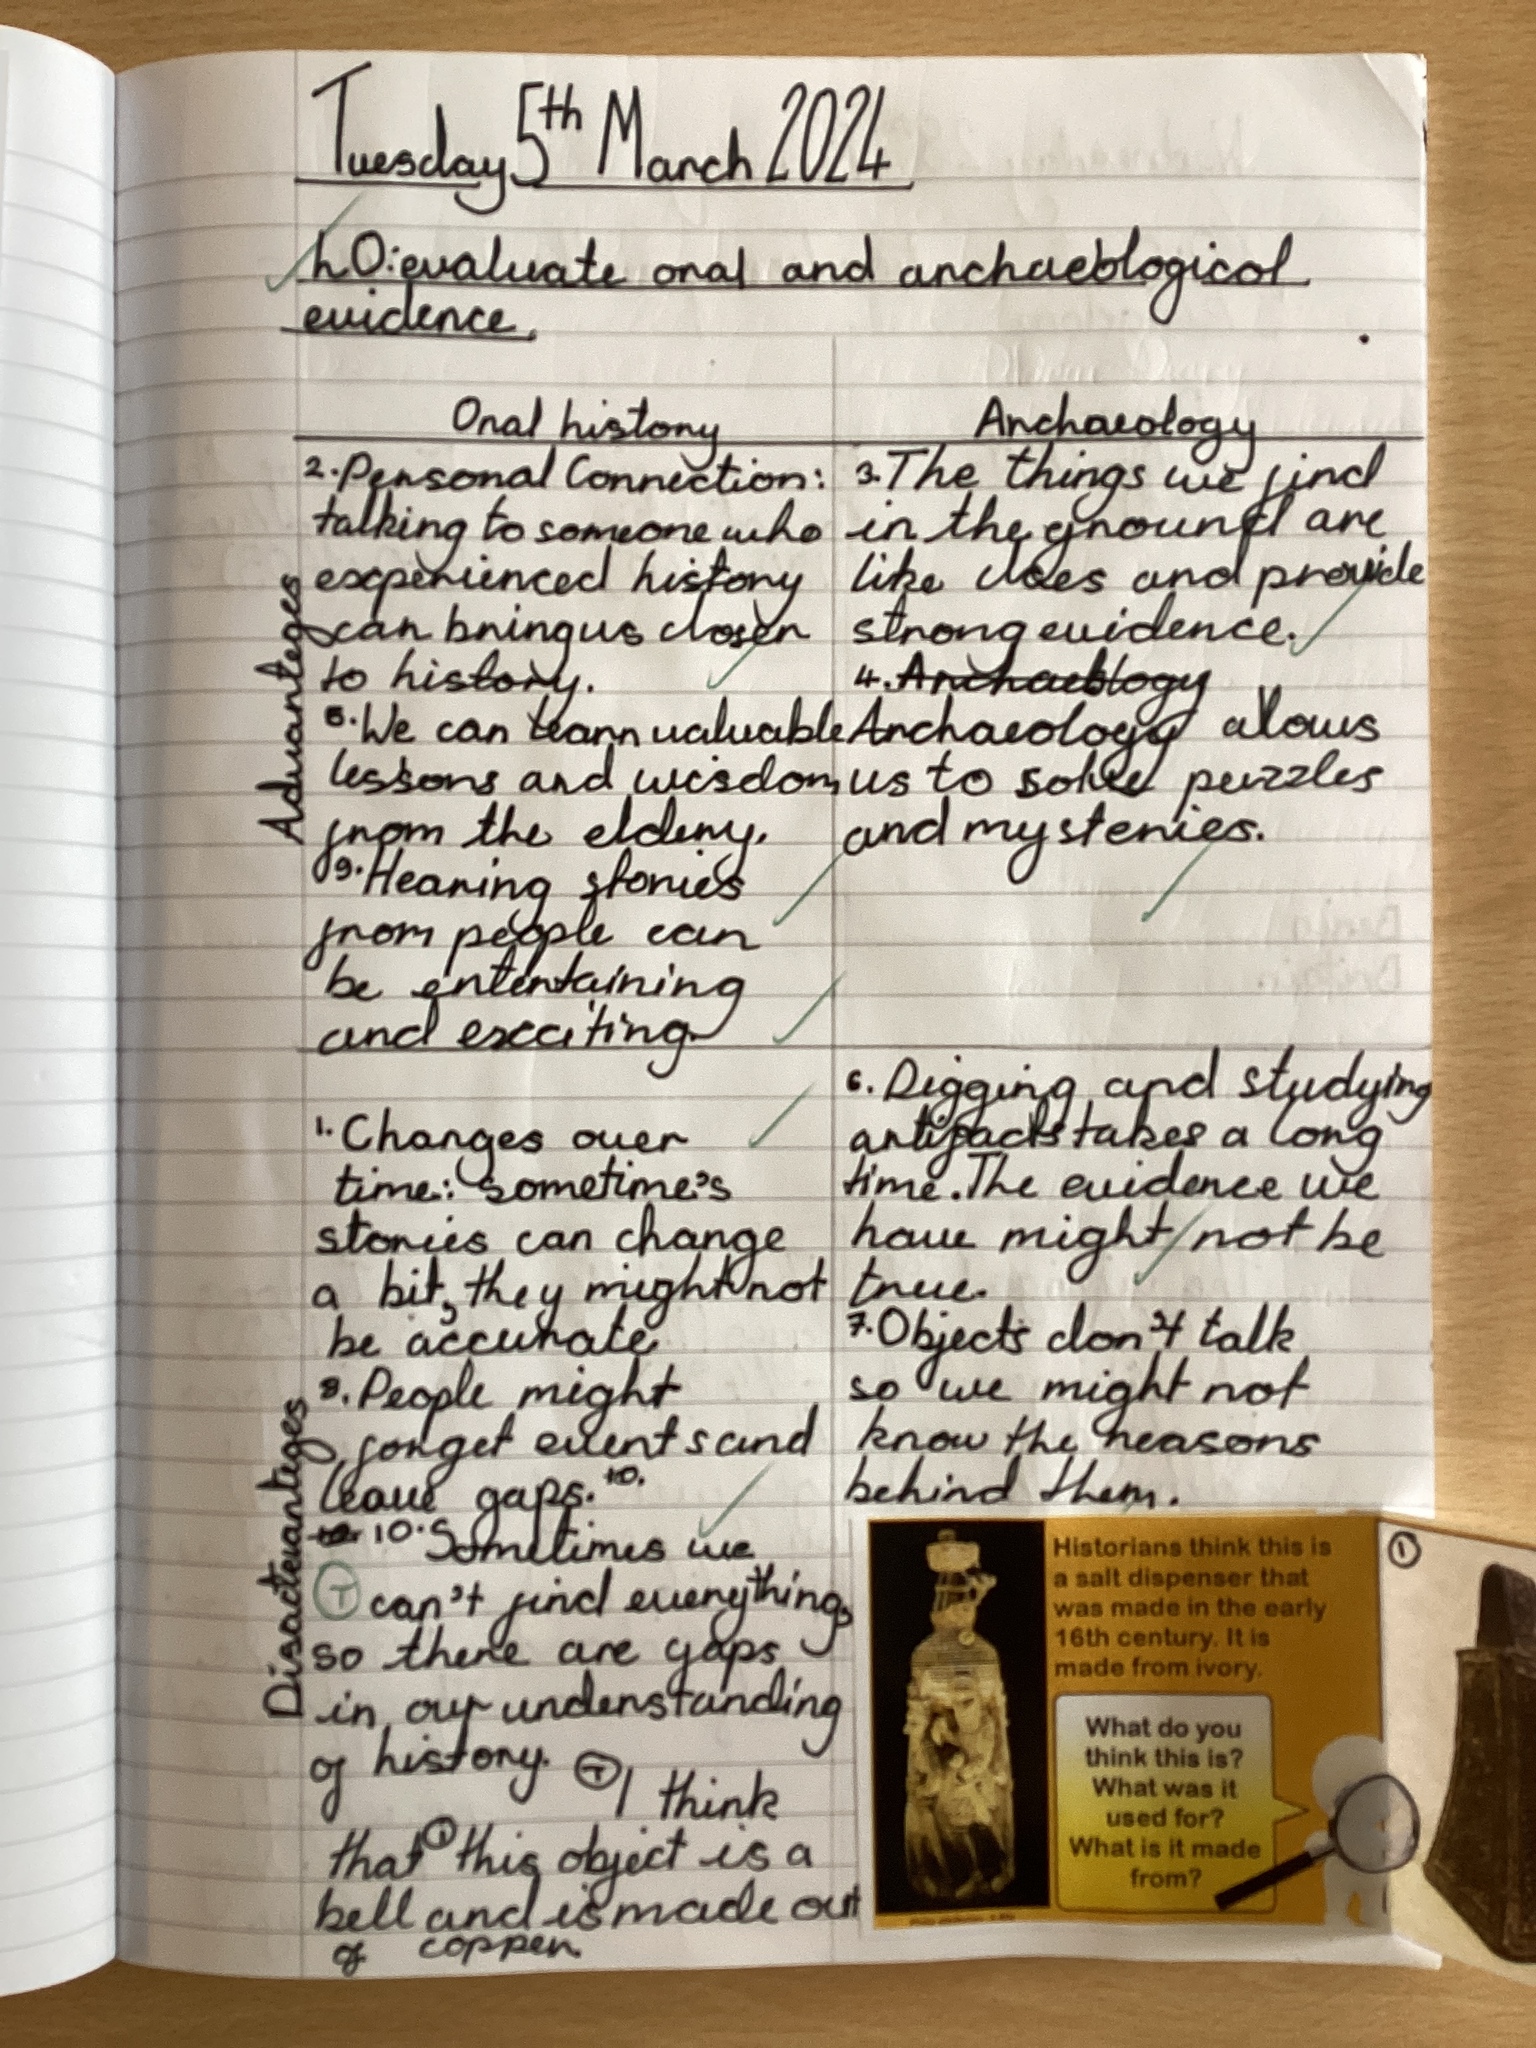 Tuesday 5th March 2024
LO: evaluate oral and archaeological
evidence.
Oral history
Advanteges
2. Personal Connection:
talking to someone who
experienced history
can bring us closer
to history.
5. We can learn valuable
lessons and wisdom
from the eldery.
9. Hearing stories
from people can
be entertaining
and exciting.
Archaeology
3. The things we find
in the ground are
like clues and provide
strong evidence.
4. Archaeology
Archaeology allows
us to solve puzzles
and mysteries.
Disadvanteges
1. Changes over
time: sometime's
stories can change
a bit, they might not
be accurate
8. People might
forget events and
leave gaps. 10.
10. 10. Sometimes we
T can't find everything,
so there are gaps
in our understanding
of history. T I think
that 1 this object is a
bell and is made out
of copper
6. Digging and studying
artifacts takes a long
time. The evidence we
have might not be
true.
7. Objects don't talk
so we might not
know the reasons
behind them.
Historians think this is
a salt dispenser that
was made in the early
16th century. It is
made from ivory.
What do you
think this is?
What was it
used for?
What is it made
from?
1